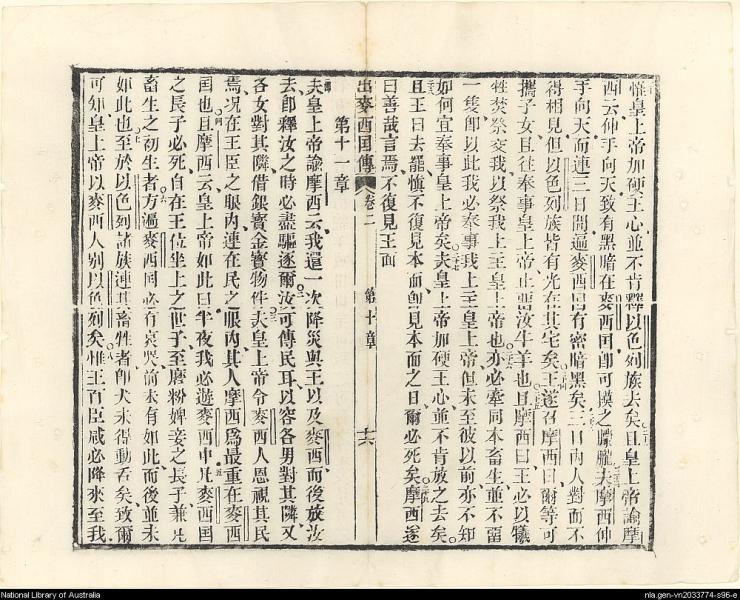 惟皇上帝加硬王心並不肯釋以色列族去矣且皇上帝諭摩
西云伸手向天致有黑暗在麥西国卽可摸之朦朧夫摩西伸
手向天而連三日間遍麥西国有密暗黑矣三日內人對面不
得相見但以色列族皆有光在其宅矣王遂召摩西曰爾等可
攜子女且往奉事皇上帝止畱汝牛羊也且摩西曰王必以犧
牲焚祭交我以祭我上主皇上帝也亦必牽同本畜生並不畱
一隻卽以此我必奉事我上主皇上帝但未至彼以前亦不知
如何宜奉事皇上帝矣夫皇上帝加硬王心並不肯放之去矣
且王曰去罷愼不復見本面卽見本面之日爾必死矣摩西遂
曰善哉言焉不復見王面
出麥西国傳 卷二 第十章 十六
第十一章
夫皇上帝諭摩西云我還一次降災與王以及麥西而後放汝
去卽釋汝之時必盡驅逐爾汝可傳民耳以容各男對其隣又
各女對其隣借銀寶金寶物件夫皇上帝令麥西人恩視其民
焉况在王臣之眼內連在民之眼內其人摩西爲最重在麥西
国也且摩西云皇上帝如此曰半夜我必遊麥西中凡麥西国
之長子必死自在王位坐上之世子至磨粉婢妾之長子兼凡
畜生之初生者方遍麥西国必有哀哭前未有如此而後並未
如此也至於以色列諸族連其畜牲者卽犬未得動舌矣致爾
可知皇上帝以麥西人别以色列矣惟王百臣咸必降來至我
National Library of Australia
nla.gen-vn2033774-s96-e